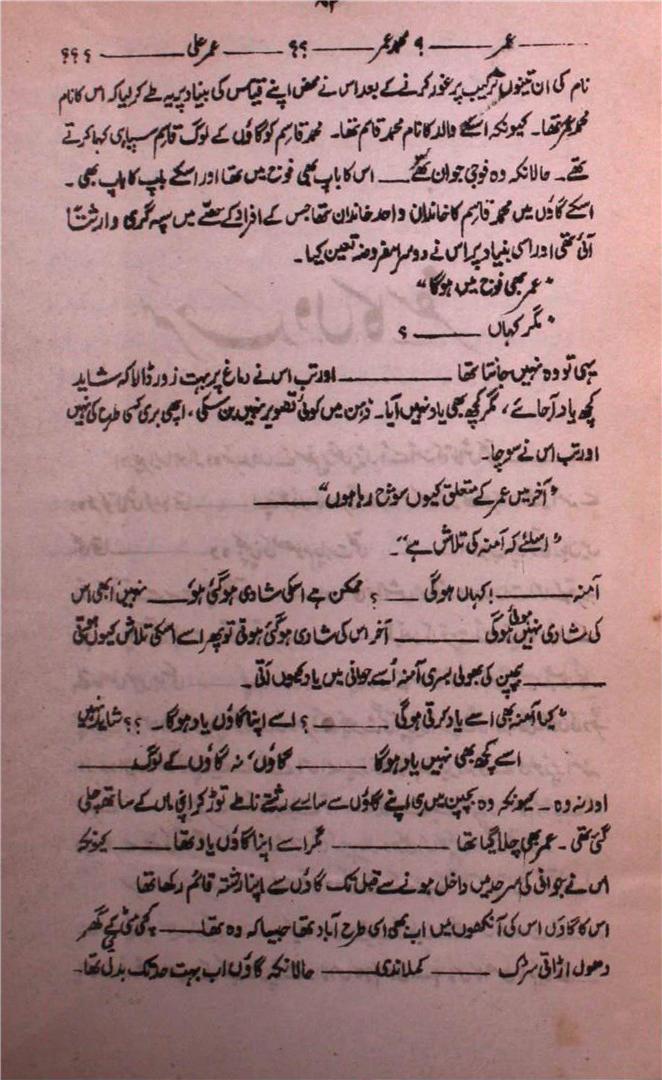 ۹۲
عمر ——— ؟ محمد عمر ——— ؟؟ ——— عمر علی ——— ؟؟؟
نام کی ان تینوں ترکیب پر غور کرنے کے بعد اس نے محض اپنے قیاس کی بنیاد پر یہ طے کر لیا کہ اس کا نام
محمد عمر تھا۔ کیونکہ اسکے والد کا نام محمد قاسم تھا۔ محمد قاسم کو گاؤں کے لوگ قاسم سپاہی کہا کرتے
تھے۔ حالانکہ وہ فوجی جوان تھے ——— اس کا باپ بھی فوج میں تھا اور اسکے باپ کا باپ بھی۔
اسکے گاؤں میں محمد قاسم کا خاندان واحد خاندان تھا جس کے افراد کے حصّے میں سپہ گری وارثتاً
آئی تھی اور اسی بنیاد پر اس نے دوسرا مفروضہ تعین کیا۔
"عمر بھی فوج میں ہوگا"
"مگر کہاں ——— ؟
یہی تو وہ نہیں جانتا تھا ——— اور تب اس نے دماغ پر بہت زور ڈالا کہ شاید
کچھ یاد آجائے، مگر کچھ بھی یاد نہیں آیا۔ ذہن میں کوئی تصویر نہیں بن سکی، اچھی بری کسی طرح کی نہیں
اور تب اس نے سوچا۔
"آخر میں عمر کے متعلق کیوں سوچ رہا ہوں" ———
"اسلئے کہ آمنہ کی تلاش ہے"۔
آمنہ ——— ! کہاں ہوگی ——— ؟ ممکن ہے اسکی شادی ہو گئی ہو ——— نہیں ابھی اس
کی شادی نہیں ہوئی ہوگی ——— آخر اس کی شادی ہو گئی ہوتی تو پھر اسے اسکی تلاش کیوں ہوتی
——— بچپن کی بھولی بسری آمنہ اُسے جوانی میں یاد کیوں آتی۔
"کیا آمنہ بھی اسے یاد کرتی ہوگی ——— ؟ اسے اپنا گاؤں یاد ہوگا۔ ؟؟ شاید نہیں
اسے کچھ بھی نہیں یاد ہوگا ——— گاؤں، نہ گاؤں کے لوگ ———
اور نہ وہ۔ کیونکہ وہ بچپن میں ہی اپنے گاؤں سے سارے رشتے ناطے توڑ کر اپنی ماں کے ساتھ چلی
گئی تھی۔ عمر بھی چلا گیا تھا ——— مگر اسے اپنا گاؤں یاد تھا ——— کیونکہ
اس نے جوانی کی سرحد میں داخل ہونے سے قبل تک گاؤں سے اپنا رشتہ قائم رکھا تھا
اس کا گاؤں اس کی آنکھوں میں اب بھی اسی طرح آباد تھا جیسا کہ وہ تھا ——— کچی مٹی کے گھر
دھول اڑاتی سڑک ——— کملا ندی ——— حالانکہ گاؤں اب بہت حد تک بدل تھا۔